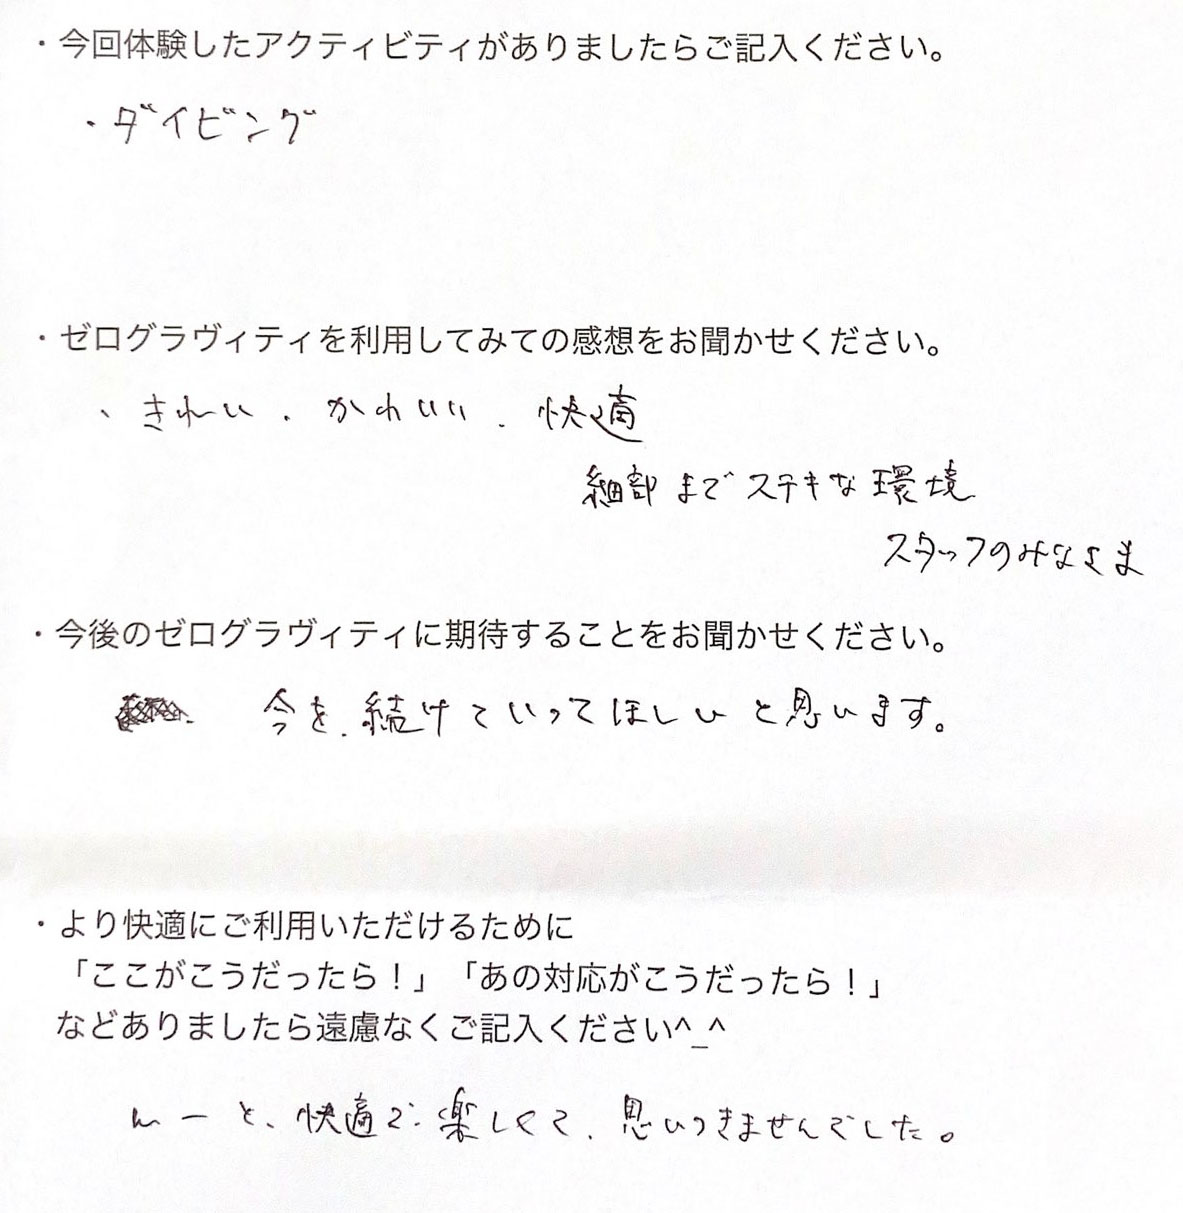 ・今回体験したアクティビティがありましたらご記入ください。
・ダイビング
・ゼログラヴィティを利用してみての感想をお聞かせください。
、きれい．かわいい．快適
細部までステキな環境
スタッフのみなさま
・今後のゼログラヴィティに期待することをお聞かせください。
今を、続けていってほしいと思います。
・より快適にご利用いただけるために
「ここがこうだったら！」「あの対応がこうだったら！」
などありましたら遠慮なくご記入ください^_^
んーと、快適で楽しくて、思いつきませんでした。